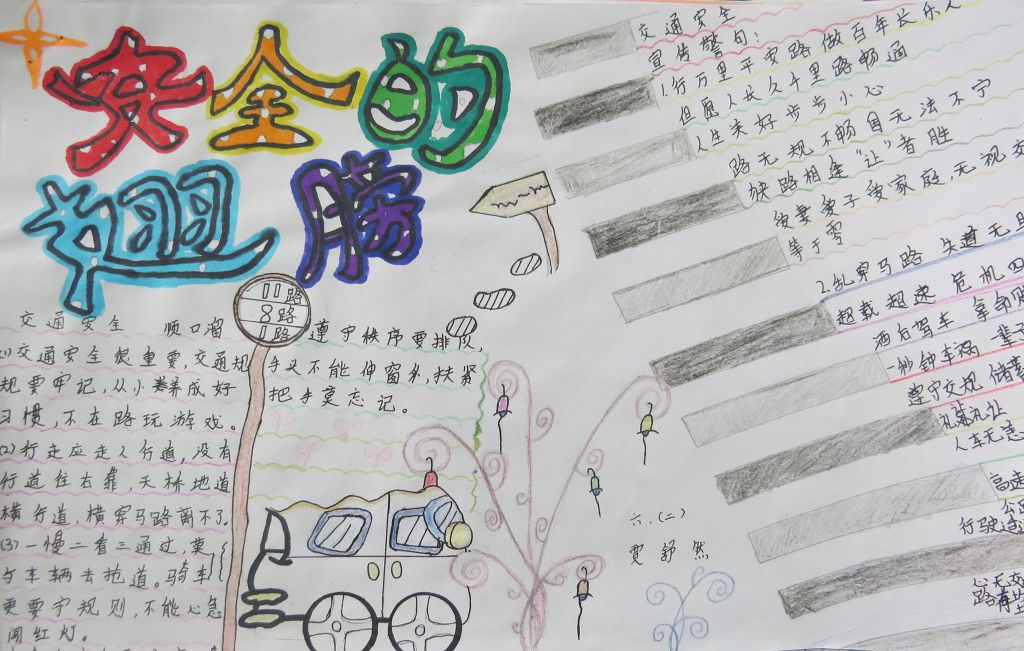 安全的
翅膀
交通安全 顺口溜
(1)交通安全很重要,交通规
规要牢记,从小养成好
习惯,不在路玩游戏。
(2)行走应走人行道,没有
行道往右靠,天桥地道
横行道,横穿马路离不了。
(3)一慢二看三通过,莫
与车辆去抢道。骑车
更要守规则,不能心急
闯红灯。
11路
8路
1路
遵守秩序要排队,
手义不能伸窗外,扶紧
把手莫忘记。
六.(二)
贾舒然
交通安全
宣传警句:
1.行万里平安路 做百年长乐人
但愿人长久 千里路畅通
人生美好 步步小心
路无规不畅 国无法不宁
狭路相逢"让"者胜
爱妻爱子爱家庭,无视交
等于零
2.乱穿马路 失道无
超载超速 危机四
酒后驾车 拿命
一秒钟车祸 一辈子
遵守交规 储
礼让
人车无恙
高速
行驶